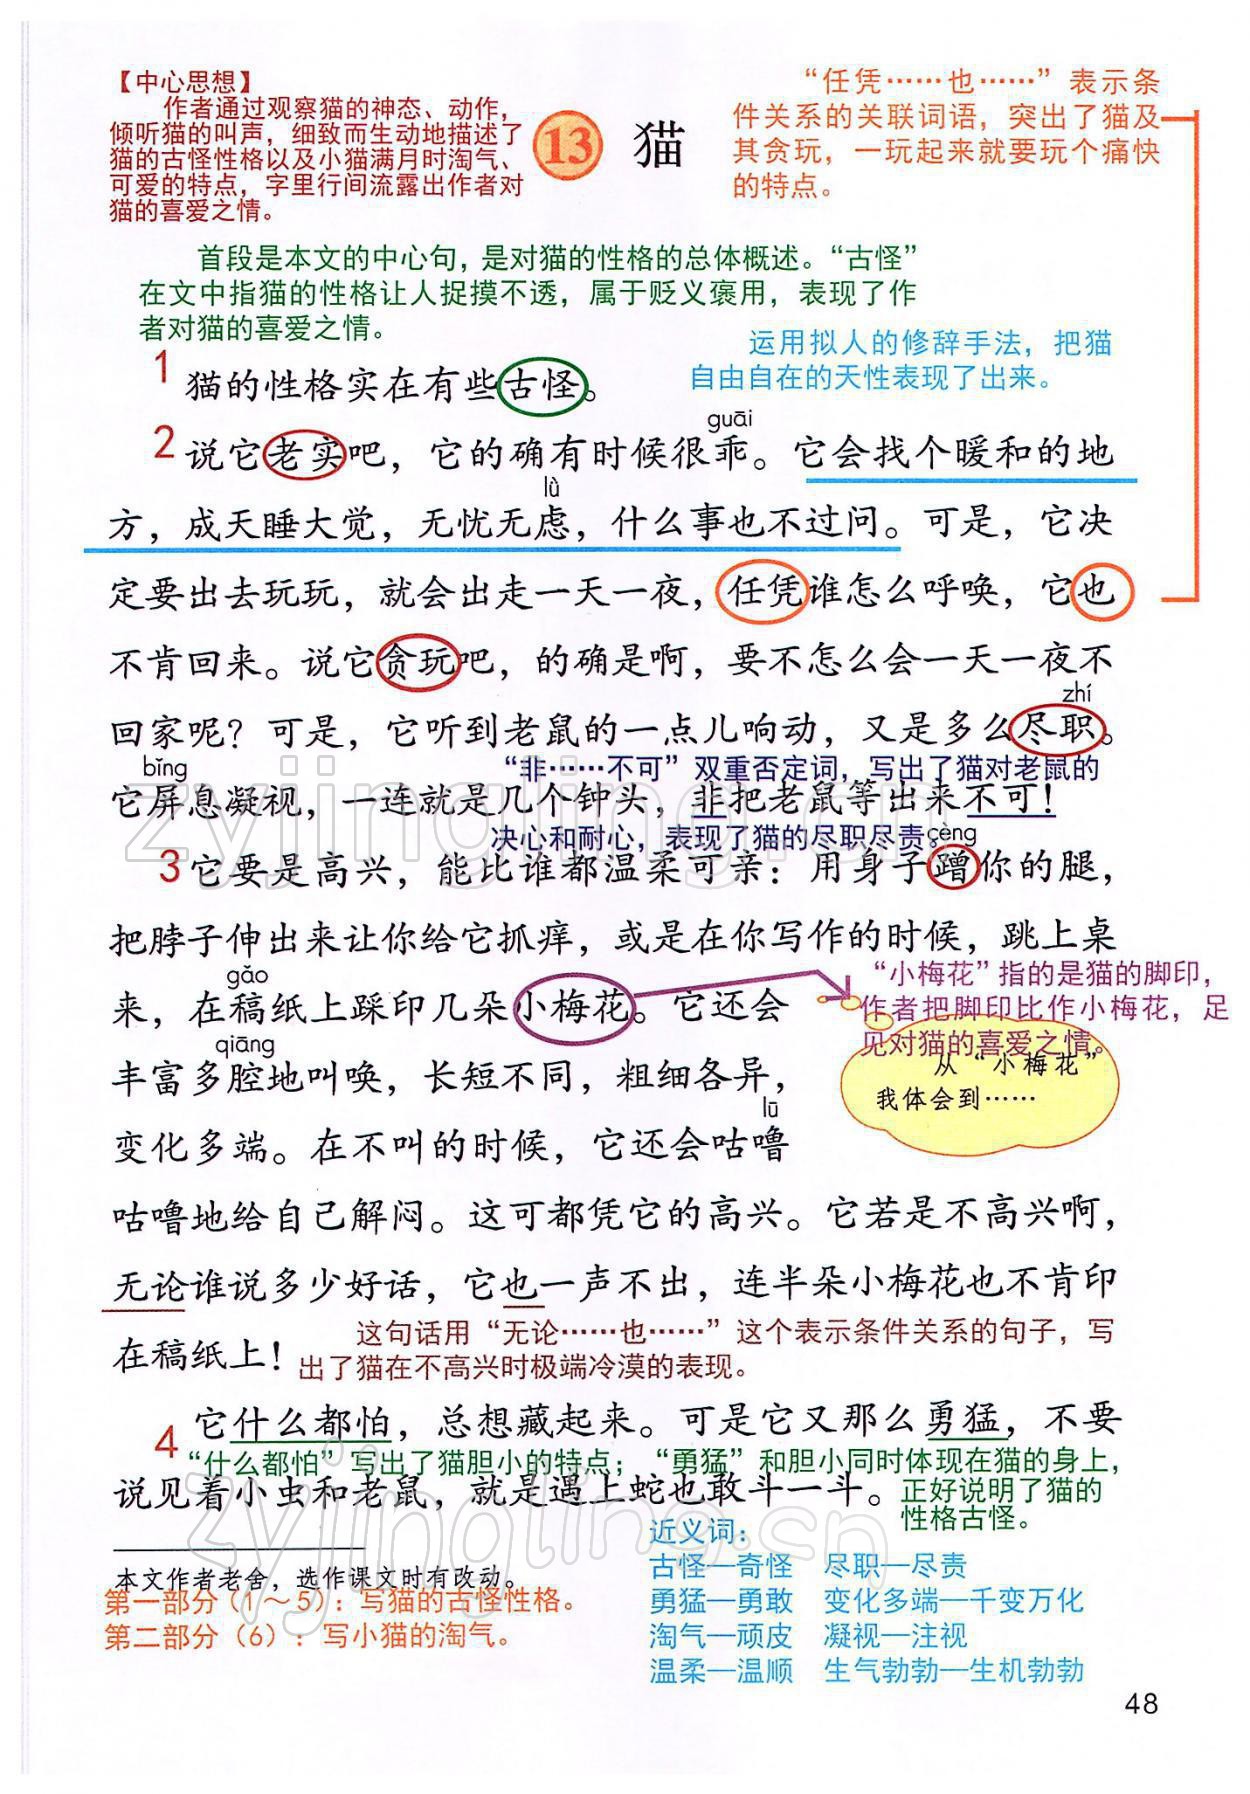 【中心思想】
作者通过观察猫的神态、动作，
倾听猫的叫声，细致而生动地描述了
猫的古怪性格以及小猫满月时淘气、
可爱的特点，字里行间流露出作者对
猫的喜爱之情。
13 猫
“任凭……也……”表示条
件关系的关联词语，突出了猫及
其贪玩，一玩起来就要玩个痛快
的特点。
首段是本文的中心句，是对猫的性格的总体概述。“古怪”
在文中指猫的性格让人捉摸不透，属于贬义褒用，表现了作
者对猫的喜爱之情。
运用拟人的修辞手法，把猫
自由自在的天性表现了出来。
1 猫的性格实在有些古怪。
guāi
2 说它老实吧，它的确有时候很乖。它会找个暖和的地
lǜ
方，成天睡大觉，无忧无虑，什么事也不过问。可是，它决
定要出去玩玩，就会出走一天一夜，任凭谁怎么呼唤，它也
不肯回来。说它贪玩吧，的确是啊，要不怎么会一天一夜不
zhí
回家呢？可是，它听到老鼠的一点儿响动，又是多么尽职。
“非……不可”双重否定词，写出了猫对老鼠的
bǐng
它屏息凝视，一连就是几个钟头，非把老鼠等出来不可！
决心和耐心，表现了猫的尽职尽责。
cèng
3 它要是高兴，能比谁都温柔可亲：用身子蹭你的腿，
把脖子伸出来让你给它抓痒，或是在你写作的时候，跳上桌
gǎo
来，在稿纸上踩印几朵小梅花。它还会
“小梅花”指的是猫的脚印，
作者把脚印比作小梅花，足
见对猫的喜爱之情。
qiāng
丰富多腔地叫唤，长短不同，粗细各异，
从“小梅花”
我体会到……
lū
变化多端。在不叫的时候，它还会咕噜
咕噜地给自己解闷。这可都凭它的高兴。它若是不高兴啊，
无论谁说多少好话，它也一声不出，连半朵小梅花也不肯印
在稿纸上！
这句话用“无论……也……”这个表示条件关系的句子，写
出了猫在不高兴时极端冷漠的表现。
4 它什么都怕，总想藏起来。可是它又那么勇猛，不要
“什么都怕”写出了猫胆小的特点；“勇猛”和胆小同时体现在猫的身上，
说见着小虫和老鼠，就是遇上蛇也敢斗一斗。
正好说明了猫的
性格古怪。
本文作者老舍，选作课文时有改动。
第一部分（1～5）：写猫的古怪性格。
第二部分（6）：写小猫的淘气。
近义词：
古怪—奇怪 尽职—尽责
勇猛—勇敢 变化多端—千变万化
淘气—顽皮 凝视—注视
温柔—温顺 生气勃勃—生机勃勃
48
zyjingling.cn
zyjingling.cn